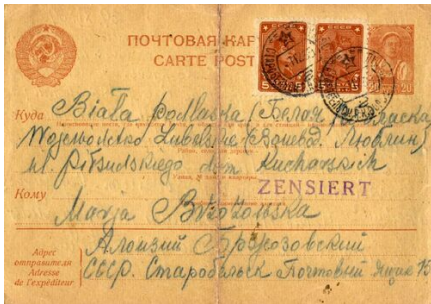 ПОЧТОВАЯ КАР
CARTE POST
СССР
5 5
20 20
Куда Biała Podlaska (Белая
Województwo Lubelskie (Воевод. Люблин)
ul. Piłsudskiego dom Kucharskich
ZENSIERT
Кому
Marja Brzozowska
Адрес
отправителя
Adresse
de l'expéditeur
Алоизий Бржозовский
СССР. Старобельск Почтовый Ящик 15